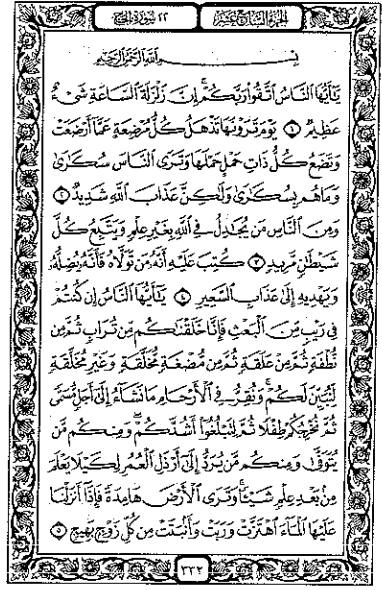 الجزء السابع عشر
٢٢ سورة الحج
بِسْمِ اللَّهِ الرَّحْمَٰنِ الرَّحِيمِ
يَٰٓأَيُّهَا النَّاسُ اتَّقُوا رَبَّكُمْ إِنَّ زَلْزَلَةَ السَّاعَةِ شَيْءٌ
عَظِيمٌ ١ يَوْمَ تَرَوْنَهَا تَذْهَلُ كُلُّ مُرْضِعَةٍ عَمَّا أَرْضَعَتْ
وَتَضَعُ كُلُّ ذَاتِ حَمْلٍ حَمْلَهَا وَتَرَى النَّاسَ سُكَٰرَىٰ
وَمَا هُم بِسُكَٰرَىٰ وَلَٰكِنَّ عَذَابَ اللَّهِ شَدِيدٌ ٢
وَمِنَ النَّاسِ مَن يُجَٰدِلُ فِي اللَّهِ بِغَيْرِ عِلْمٍ وَيَتَّبِعُ كُلَّ
شَيْطَٰنٍ مَّرِيدٍ ٣ كُتِبَ عَلَيْهِ أَنَّهُ مَن تَوَلَّاهُ فَأَنَّهُ يُضِلُّهُ
وَيَهْدِيهِ إِلَىٰ عَذَابِ السَّعِيرِ ٤ يَٰٓأَيُّهَا النَّاسُ إِن كُنتُمْ
فِي رَيْبٍ مِّنَ الْبَعْثِ فَإِنَّا خَلَقْنَٰكُم مِّن تُرَابٍ ثُمَّ مِن
نُّطْفَةٍ ثُمَّ مِنْ عَلَقَةٍ ثُمَّ مِن مُّضْغَةٍ مُّخَلَّقَةٍ وَغَيْرِ مُخَلَّقَةٍ
لِّنُبَيِّنَ لَكُمْ وَنُقِرُّ فِي الْأَرْحَامِ مَا نَشَاءُ إِلَىٰ أَجَلٍ مُّسَمًّى
ثُمَّ نُخْرِجُكُمْ طِفْلًا ثُمَّ لِتَبْلُغُوا أَشُدَّكُمْ وَمِنكُم مَّن
يُتَوَفَّىٰ وَمِنكُم مَّن يُرَدُّ إِلَىٰ أَرْذَلِ الْعُمُرِ لِكَيْلَا يَعْلَمَ
مِن بَعْدِ عِلْمٍ شَيْئًا وَتَرَى الْأَرْضَ هَامِدَةً فَإِذَا أَنزَلْنَا
عَلَيْهَا الْمَاءَ اهْتَزَّتْ وَرَبَتْ وَأَنبَتَتْ مِن كُلِّ زَوْجٍ بَهِيجٍ ٥
٣٣٢